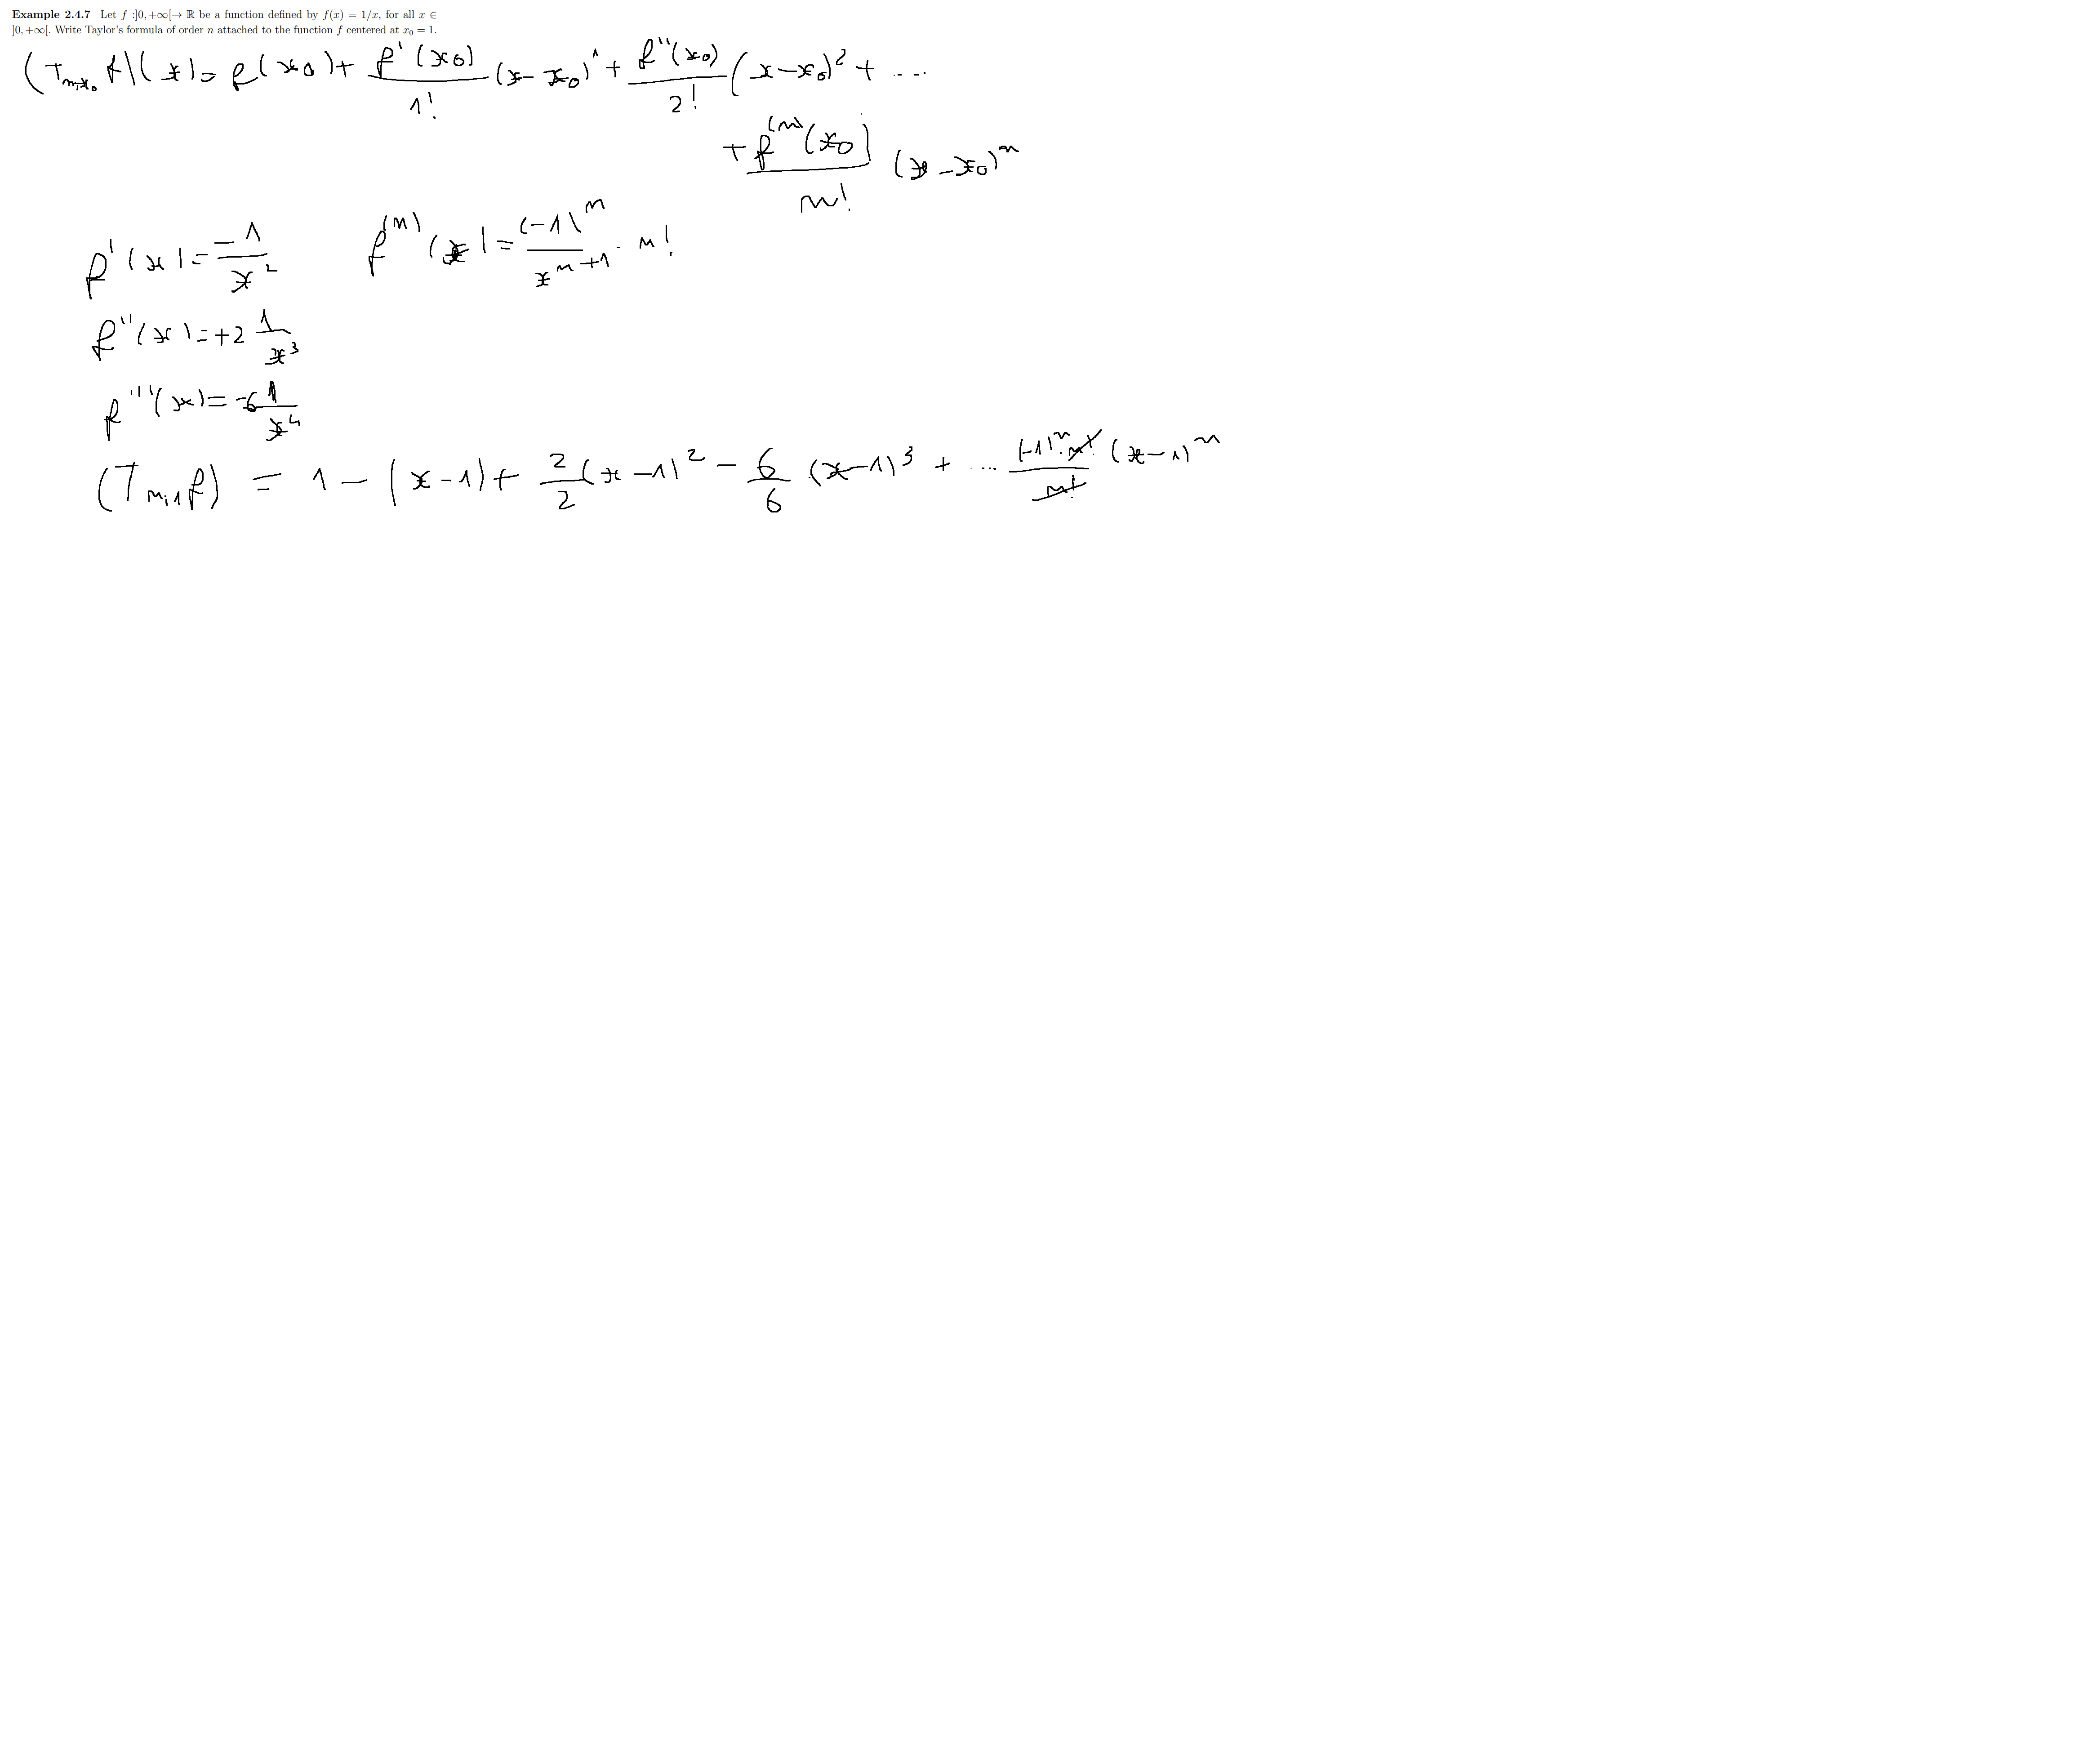 Example 2.4.7 Let f :]0, +∞[→ ℝ be a function defined by f(x) = 1/x, for all x ∈
]0, +∞[. Write Taylor's formula of order n attached to the function f centered at x₀ = 1.
(T_{n,x₀} f)(x) = f(x₀) + f'(x₀)/1! (x - x₀)¹ + f''(x₀)/2! (x - x₀)² + ....
+ f⁽ⁿ⁾(x₀)/n! (x - x₀)ⁿ
f'(x) = -1/x² f⁽ⁿ⁾(x) = (-1)ⁿ/xⁿ⁺¹ · n!
f''(x) = +2 1/x³
f'''(x) = -6 1/x⁴
(T_{n,1} f) = 1 - (x - 1) + 2/2 (x - 1)² - 6/6 (x - 1)³ + .... (-1)ⁿ · n!/n! (x - 1)ⁿ